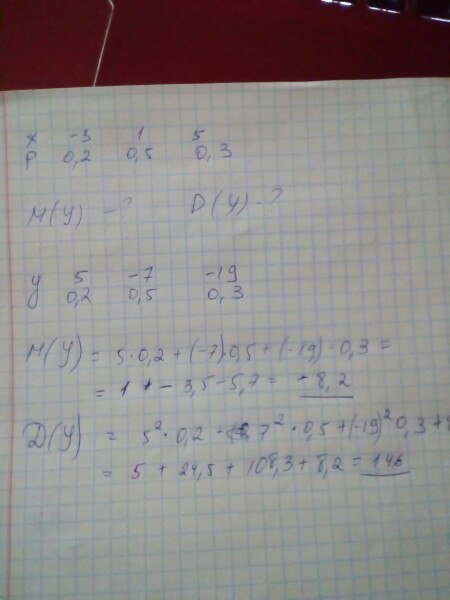 x -3 1 5
p 0,2 0,5 0,3
M(y) -? D(y) -?
y 5 -7 -19
0,2 0,5 0,3
M(y) = 5·0,2 + (-7)·0,5 + (-19)·0,3 =
= 1 + - 3,5 - 5,7 = -8,2
D(y) = 5²·0,2 + 7²·0,5 + (-19)² 0,3 + 8
= 5 + 24,5 + 108,3 + 8,2 = 146